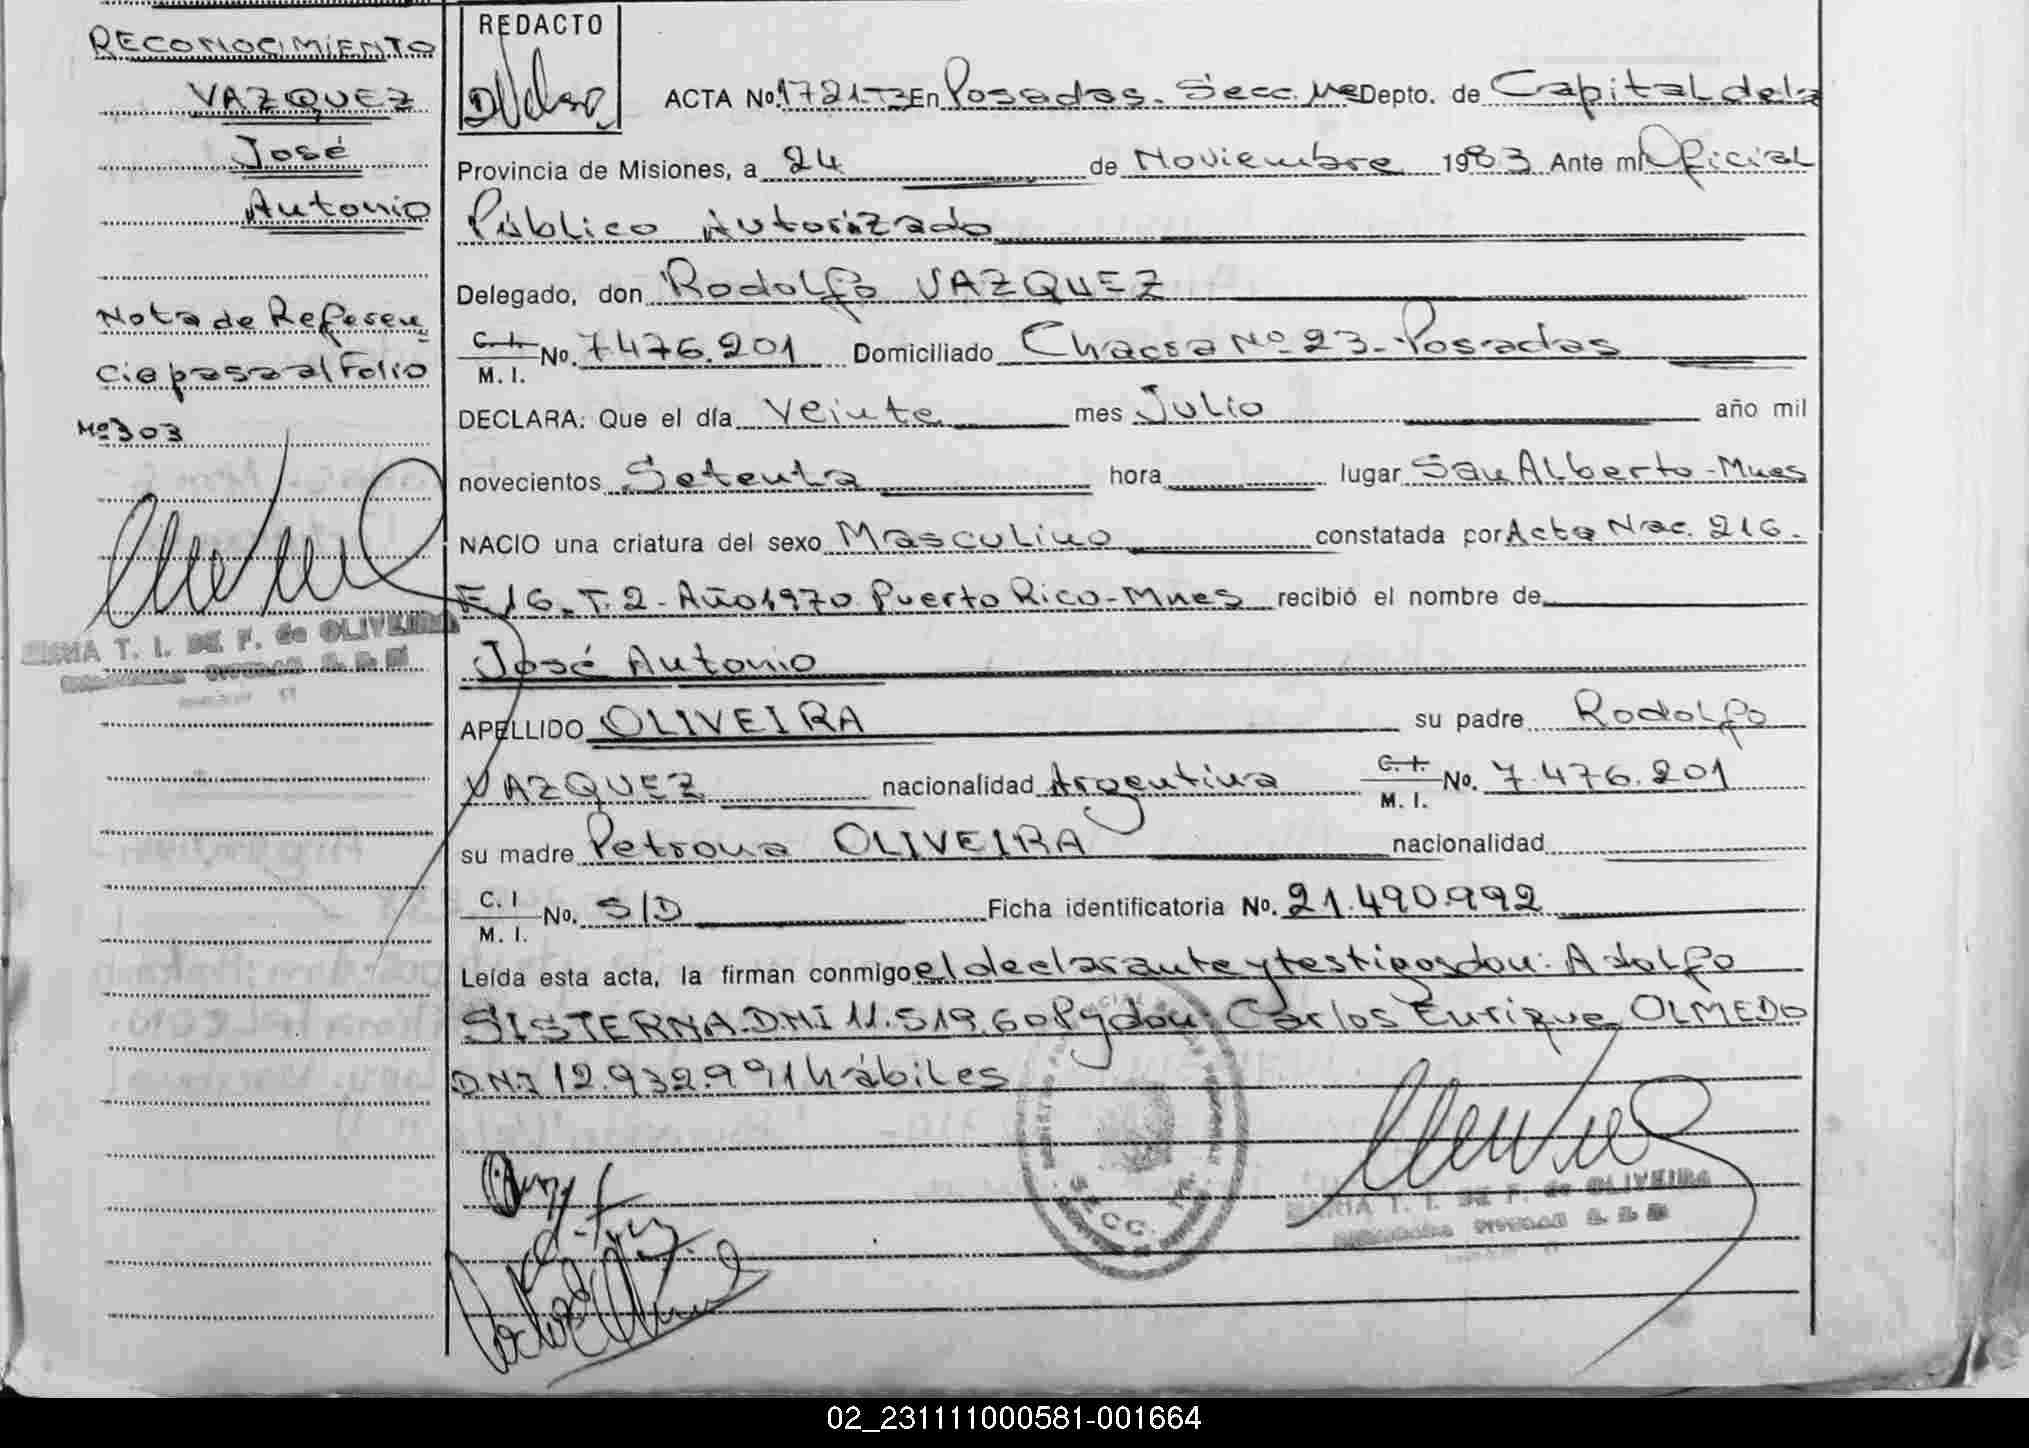 RECONOCIMIENTO
VAZQUEZ
José
Antonio
Nota de Referen
cia pasa al Folio
Nº 303
MARIA T. I. DE F. de OLIVEIRA
REDACTO
ACTA No. 1721-T3 En Posadas. Secc. 1ra Depto. de Capital de la
Provincia de Misiones, a 24 de Noviembre 1983 Ante mí Oficial
Público Autorizado
Delegado, don Rodolfo VAZQUEZ
C. I. M. I. No. 7476.201 Domiciliado Chacra Nº 23-Posadas
DECLARA: Que el día Veinte mes Julio año mil
novecientos Setenta hora lugar San Alberto-Mnes
NACIO una criatura del sexo Masculino constatada por Acta Nac. 216.
F. 16. T. 2 - Año 1970 Puerto Rico-Mnes recibió el nombre de
José Antonio
APELLIDO OLIVEIRA su padre Rodolfo
VAZQUEZ nacionalidad Argentina C. I. M. I. No. 7.476.201
su madre Petrona OLIVEIRA nacionalidad
C. I M. I. No. S/D Ficha identificatoria No. 21.490.992
Leída esta acta, la firman conmigo el declarante y testigos don: Adolfo
SISTERNA D.N.I 11.519.608 y don: Carlos Enrique OLMEDO
D.N.I 12.932.991 hábiles
SECC. 1ra.
MARIA T. I. DE F. de OLIVEIRA
02_231111000581-001664